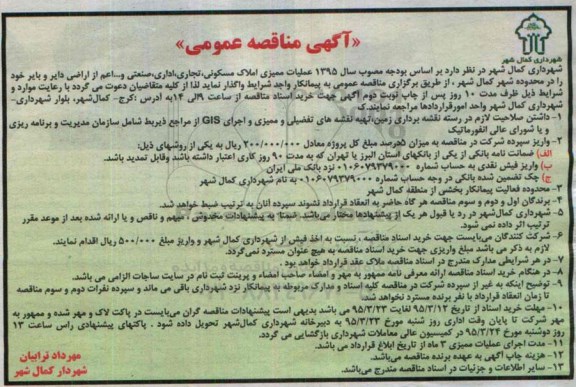 شهرداری کمال شهر
«آگهی مناقصه عمومی»
شهرداری کمال شهر در نظر دارد بر اساس بودجه مصوب سال ۱۳۹۵ عملیات ممیزی املاک مسکونی،تجاری،اداری،صنعتی و...اعم از اراضی دایر و بایر خود
را در محدوده شهر کمال شهر ، از طریق برگزاری مناقصه عمومی به پیمانکار واجد شرایط واگذار نماید لذا از کلیه متقاضیان دعوت می گردد با رعایت موارد و
شرایط ذیل ظرف مدت ۱۰ روز پس از چاپ نوبت دوم آگهی جهت خرید اسناد مناقصه از ساعت ۹الی ۱۴به آدرس :کرج- کمال‌شهر، بلوار شهرداری-
شهرداری کمال شهر واحد امورقراردادها مراجعه نمایند.
۱-داشتن صلاحیت لازم در رسته نقشه برداری زمین،تهیه نقشه های تفضیلی و ممیزی و اجرای GIS از مراجع ذیربط شامل سازمان مدیریت و برنامه ریزی
و یا شورای عالی انفورماتیک
۲-واریز سپرده شرکت در مناقصه به میزان ۵درصد مبلغ کل پروژه معادل ۲۰۰/۰۰۰/۰۰۰ ریال به یکی از روشهای ذیل:
الف) ضمانت نامه بانکی از یکی از بانکهای استان البرز یا تهران که به مدت ۹۰ روز کاری اعتبار داشته باشد وقابل تمدید باشد.
ب) واریز فیش نقدی به حساب شماره ۰۱۰۶۰۷۹۳۷۹۰۰۰ نزد بانک ملی ایران
ج) چک تضمین شده بانکی در وجه حساب شماره ۰۱۰۶۰۷۹۳۷۹۰۰۰ به نام شهرداری کمال شهر
۳-محدوده فعالیت پیمانکار بخشی از منطقه کمال شهر
۴-برندگان اول و دوم و سوم مناقصه هر گاه حاضر به انعقاد قرارداد نشوند سپرده آنان به ترتیب ضبط خواهد شد.
۵-شهرداری کمال‌شهر در رد یا قبول هر یک از پیشنهادها مختار می‌باشد.ضمنا به پیشنهادات مخدوش ، مبهم و ناقص و یا ارائه شده بعد از موعد مقرر
ترتیب اثر داده نمی شود.
۶-شرکت کنندگان می‌بایست جهت خرید اسناد مناقصه ، نسبت به اخذ فیش از شهرداری کمال شهر و واریز مبلغ ۵۰۰/۰۰۰ ریال اقدام نمایند.
لازم به ذکر می باشد مبلغ واریزی جهت خرید اسناد مناقصه به هیچ عنوان مسترد نمی‌گردد.
۷-در هر شرایطی مدارک مندرج در اسناد مناقصه ملاک عقد قرارداد خواهد بود .
۸-در هنگام خرید اسناد مناقصه ارائه معرفی نامه ممهور به مهر و امضاء صاحب امضاء و پرینت ثبت نام در سایت ساجات الزامی می باشد.
۹-توضیح اینکه به غیر از سپرده شرکت در مناقصه کلیه اسناد و مدارک مربوطه به پیمانکار نزد شهرداری باقی می ماند و سپرده نفرات دوم و سوم مناقصه
تا زمان انعقاد قرارداد با نفر برنده مسترد نخواهد شد.
۱۰-مهلت خرید اسناد از تاریخ ۹۵/۳/۱۲ لغایت ۹۵/۳/۲۳ می باشد بدیهی است پیشنهادات مناقصه گران می‌بایست در پاکت لاک و مهر شده و ممهور به
مهر شرکت تا پایان وقت اداری روز شنبه مورخ ۹۵/۳/۲۳ به دبیرخانه شهرداری کمال‌شهر تحویل داده شود . پاکتهای پیشنهادی راس ساعت ۱۳
روز دوشنبه مورخ ۹۵/۳/۲۴ در کمیسیون عالی معاملات شهرداری بازگشایی می گردد.
۱۱-مدت اجرای عملیات ممیزی ۳ ماه از تاریخ ابلاغ قرارداد می باشد.
۱۲- هزینه چاپ آگهی به عهده برنده مناقصه می‌باشد.
۱۳- سایر اطلاعات و جزئیات در اسناد مناقصه مندرج می‌باشد.
مهرداد ترابیان
شهردار کمال شهر